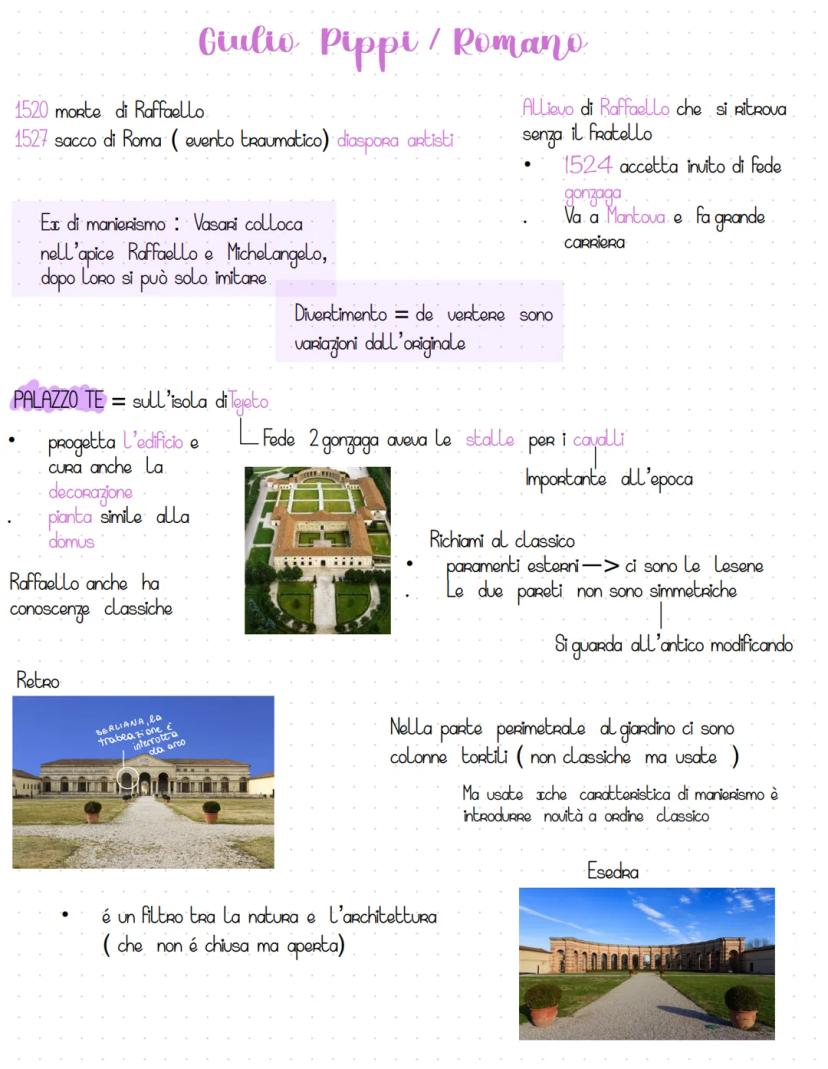 Giulio Pippi / Romano
1520 morte di Raffaello
1527 sacco di Roma ( evento traumatico) diaspora artisti
Allievo di Raffaello che si ritrova
senza il fratello
• 1524 accetta invito di fede
gonzaga
. Va a Mantova e fa grande
carriera
Ex di manierismo : Vasari colloca
nell'apice Raffaello e Michelangelo,
dopo loro si può solo imitare
Divertimento = de vertere sono
variazioni dall'originale
PALAZZO TE = sull'isola di Tejeto
Fede 2 gonzaga aveva le stalle per i cavalli
Importante all'epoca
• progetta l'edificio e
cura anche la
decorazione
. pianta simile alla
domus
Raffaello anche ha
conoscenze classiche
Richiami al classico
• paramenti esterni—> ci sono le lesene
. Le due pareti non sono simmetriche
Si guarda all'antico modificando
Retro
SERLIANA, la
trabeazione è
interrotta
da arco
Nella parte perimetrale al giardino ci sono
colonne tortili ( non classiche ma usate )
Ma usate xche caratteristica di manierismo è
introdurre novità a ordine classico
Esedra
• é un filtro tra la natura e l'architettura
( che non é chiusa ma aperta)